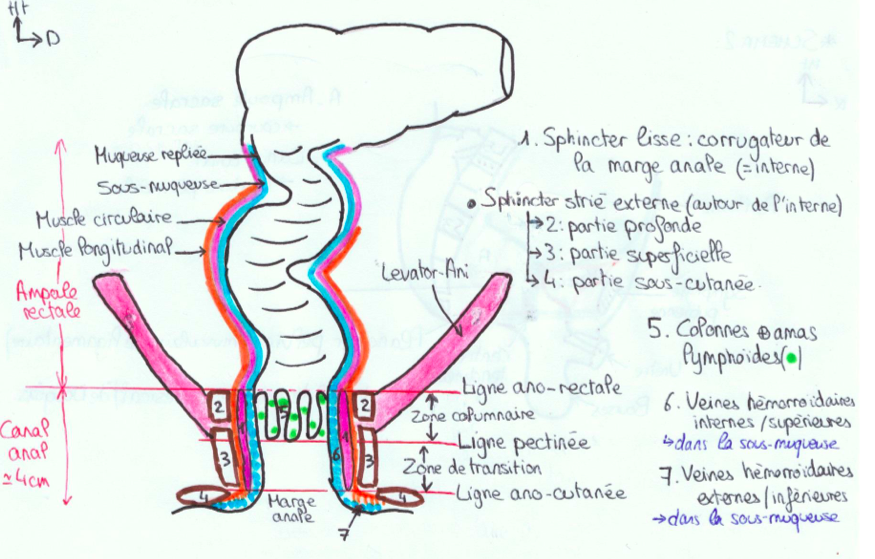 Ht
D
Muqueuse repliée
Sous-muqueuse
Muscle circulaire
Muscle longitudinal
Ampoule
rectale
Canal
anal
≃4cm
1. Sphincter lisse : corrugateur de
la marge anale (=interne)
• Sphincter strié externe (autour de l'interne)
→2: partie profonde
→3: partie superficielle
→4: partie sous-cutanée.
Levator-Ani
5. Colonnes ⊕ amas
lymphoïdes(•)
Ligne ano-rectale
Zone columnaire
Ligne pectinée
Zone de transition
Ligne ano-cutanée
6. Veines hémorroïdaires
internes/supérieures
↳dans la sous-muqueuse
7. Veines hémorroïdaires
externes/inférieures
→dans la sous-muqueuse
2
1
5
1
2
3
6
3
4
Marge
anale
4
7